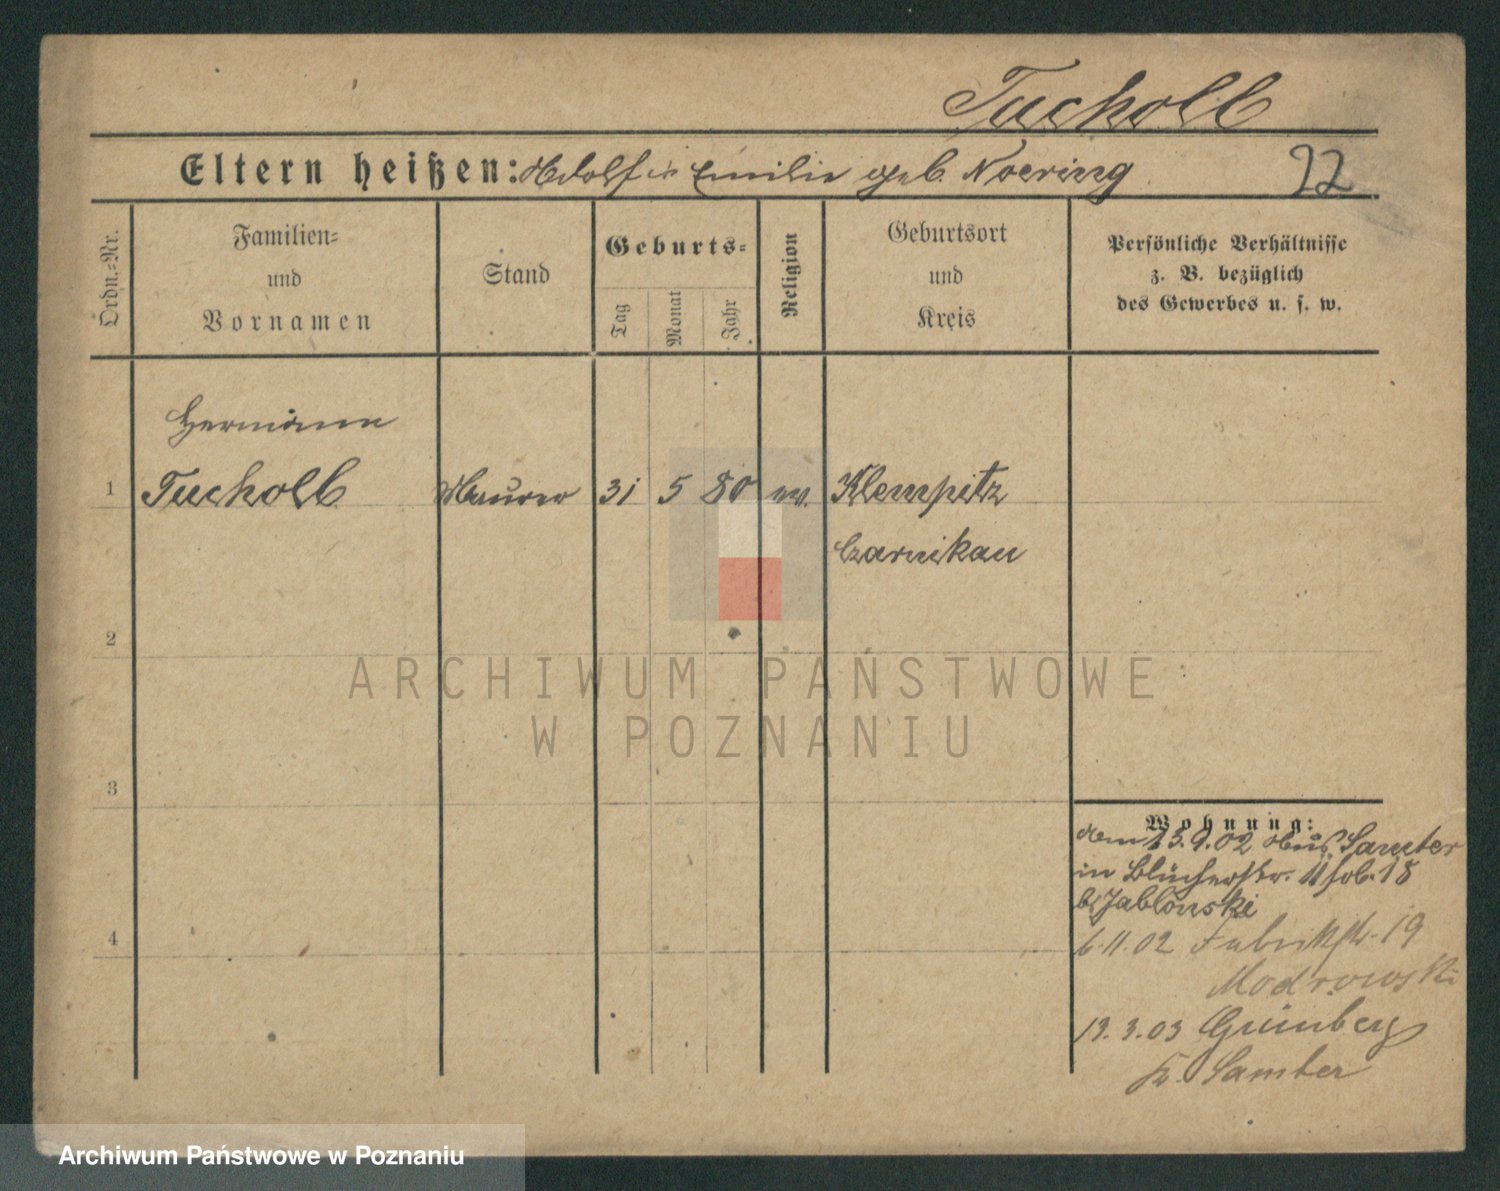 Tucholl
Eltern heißen: Adolf u Emilie geb. Noering
22
Ordn.-Nr.
Familien-
und
Vornamen
Stand
Geburts-
Tag
Monat
Jahr
Religion
Geburtsort
und
Kreis
Persönliche Verhältnisse
z. B. bezüglich
des Gewerbes u. s. w.
Hermann
1 Tucholl Maurer 31 5 80 Klempitz
Czarnikau
2
ARCHIWUM PAŃSTWOWE
W POZNANIU
3
Wohnung:
13.9.02 aus Samter
in Blücherstr. 11 18
b/ Jablonski
6.11.02 Fabrikstr. 19
4
Modrowski
19.3.03 Grünberg
K. Samter
Archiwum Państwowe w Poznaniu